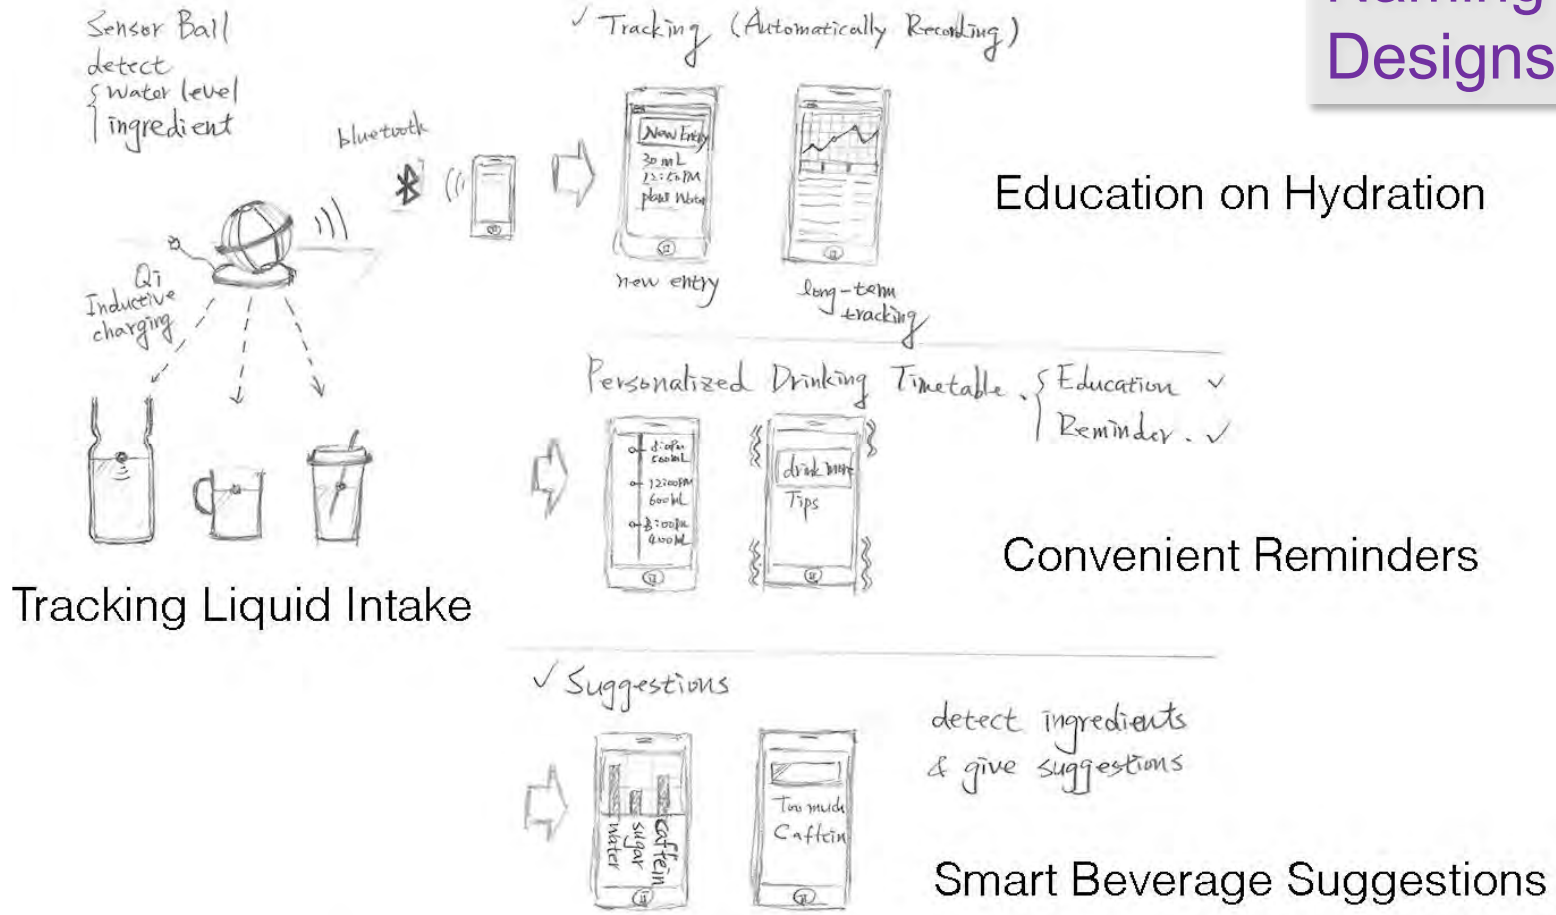 Naming
Designs
Sensor Ball
detect
water level
ingredient
bluetooth
Qi
Inductive
charging
Tracking Liquid Intake
✓ Tracking (Automatically Recording)
New Entry
30 mL
plain Water
new entry
long-term
tracking
Education on Hydration
Personalized Drinking Timetable.
Education ✓
Reminder. ✓
500mL
12:00PM
600mL
8:00PM
400mL
drink more
Tips
Convenient Reminders
✓ Suggestions
water
sugar
caffein
Too much
Caffein
detect ingredients
& give suggestions
Smart Beverage Suggestions